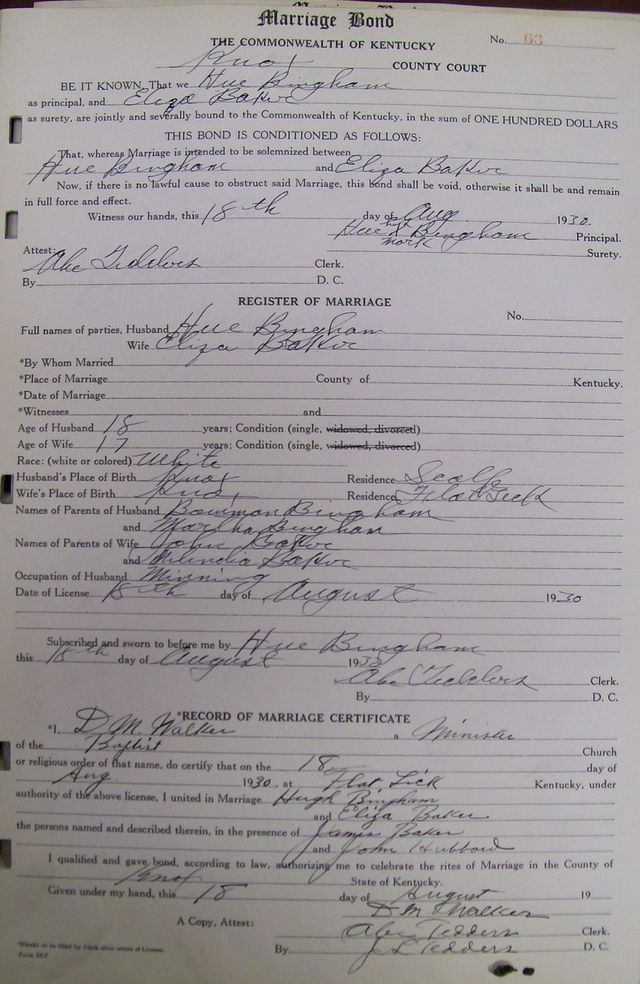 Marriage Bond
No. 63
THE COMMONWEALTH OF KENTUCKY
Knox COUNTY COURT
BE IT KNOWN, That we Hue Bingham
as principal, and Eliza Baker
as surety, are jointly and severally bound to the Commonwealth of Kentucky, in the sum of ONE HUNDRED DOLLARS
THIS BOND IS CONDITIONED AS FOLLOWS:
That, whereas Marriage is intended to be solemnized between
Hue Bingham and Eliza Baker
Now, if there is no lawful cause to obstruct said Marriage, this bond shall be void, otherwise it shall be and remain
in full force and effect.
Witness our hands, this 18th day of Aug 1930.
Hue his X mark Bingham Principal.
Surety.
Attest:
Abe Clerk.
By D. C.
REGISTER OF MARRIAGE
No.
Full names of parties, Husband Hue Bingham
Wife Eliza Baker
*By Whom Married
*Place of Marriage County of Kentucky.
*Date of Marriage
*Witnesses and
Age of Husband 18 years; Condition (single, widowed, divorced)
Age of Wife 17 years; Condition (single, widowed, divorced)
Race: (white or colored) White
Husband's Place of Birth Knox Residence Scalf
Wife's Place of Birth Knox Residence Flat Lick
Names of Parents of Husband Bowman Bingham
and Martha Bingham
Names of Parents of Wife John Baker
and Baker
Occupation of Husband Minning
Date of License 18th day of August 1930
Subscribed and sworn to before me by Hue Bingham
this 18th day of August 1930
Abe Clerk.
By D. C.
*RECORD OF MARRIAGE CERTIFICATE
*I, D. M. Walker a Minister
of the Baptist Church
or religious order of that name, do certify that on the 18 day of
Aug 1930, at Flat Lick Kentucky, under
authority of the above license, I united in Marriage Hugh Bingham
and Eliza Baker
the persons named and described therein, in the presence of James Baker
and John Hubbard
I qualified and gave bond, according to law, authorizing me to celebrate the rites of Marriage in the County of
Knox State of Kentucky.
Given under my hand, this 18 day of August 19
D. M. Walker
A Copy, Attest: Abe Tedders Clerk.
By J L Tedders D. C.
*Blanks to be filled by Clerk after return of License.